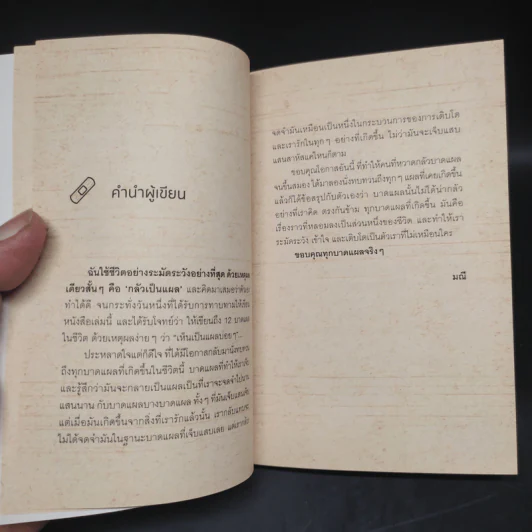 คำนำผู้เขียน
ฉันใช้ชีวิตอย่างระมัดระวังอย่างที่สุด ด้วยเหตุผล
เดียวสั้นๆ คือ ‘กลัวเป็นแผล’ และคิดมาเสมอว่าตัวเอง
ทำได้ดี จนกระทั่งวันหนึ่งที่ได้รับการทาบทามให้เขียน
หนังสือเล่มนี้ และได้รับโจทย์ว่า ให้เขียนถึง 12 บาดแผล
ในชีวิต ด้วยเหตุผลง่ายๆ ว่า “เห็นเป็นแผลบ่อยๆ”...
ประหลาดใจแต่ก็ดีใจ ที่ได้มีโอกาสกลับมานั่ง
ถึงทุกบาดแผลที่เกิดขึ้นในชีวิตนี้ บาดแผลที่ทำให้เรา
และรู้สึกว่ามันจะกลายเป็นแผลเป็นที่เราจะจดจำไป
แสนนาน กับบาดแผลบางบาดแผล ทั้งๆ ที่มันเจ็บแสน
แต่เมื่อมันเกิดขึ้นจากสิ่งที่เรารักแล้วนั้น เรากลับ
ไม่ได้จดจำมันในฐานะบาดแผลที่เจ็บแสบเลย แต่เรา
จดจำมันเหมือนเป็นหนึ่งในกระบวนการของการเติบโต
และเรารักในทุกๆ อย่างที่เกิดขึ้น ไม่ว่ามันจะเจ็บแสบ
แสนสาหัสแค่ไหนก็ตาม
ขอบคุณโอกาสอันนี้ ที่ทำให้คนที่หวาดกลัวบาดแผล
จนขึ้นสมอง ได้มาลองนั่งทบทวนถึงทุกๆ แผลที่เคยเกิดขึ้น
แล้วก็ได้ข้อสรุปกับตัวเองว่า บาดแผลนั้นไม่ได้น่ากลัว
อย่างที่เราคิด ตรงกันข้าม ทุกบาดแผลที่เกิดขึ้น มันคือ
เรื่องราวที่หลอมลงเป็นส่วนหนึ่งของชีวิต และทำให้เรา
ระมัดระวัง เข้าใจ และเติบโตเป็นตัวเราที่ไม่เหมือนใคร
ขอบคุณทุกบาดแผลจริงๆ
มณี